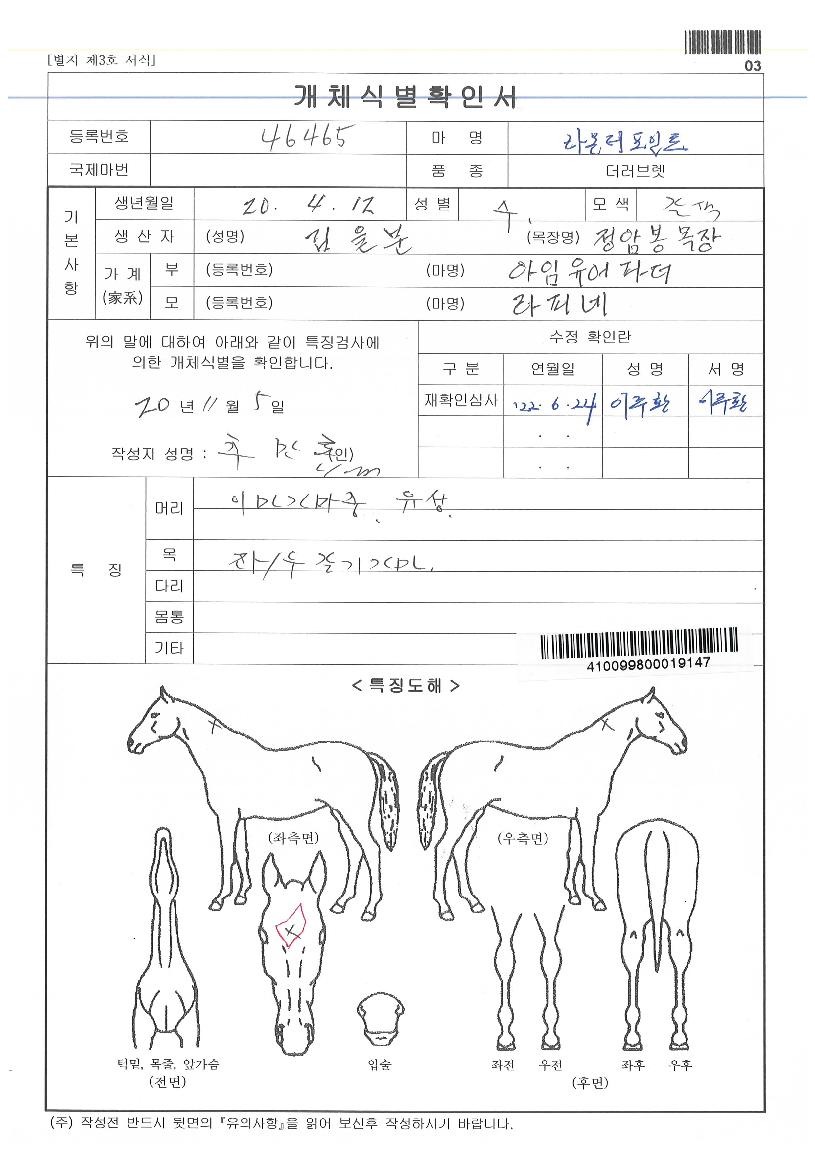 [별지 제3호 서식]
03
개체식별확인서
등록번호 46465 마 명 라온더포인트
국제마번 품 종 더러브렛
기본사항
생년월일 20. 4. 12 성 별 수. 모 색 갈색
생 산 자 (성명) 김을분 (목장명) 정암봉목장
가 계 (家系) 부 (등록번호) (마명) 아임유어파더
모 (등록번호) (마명) 라피네
위의 말에 대하여 아래와 같이 특징검사에
의한 개체식별을 확인합니다.
20 년 11 월 5 일
작성자 성명 : (인)
수정 확인란
구 분 연월일 성 명 서 명
재확인심사 '22. 6. 24 이주환 이주환
. .
. .
특 징
머리
목
다리
몸통
기타
410099800019147
< 특징도해 >
(좌측면) (우측면)
턱밑, 목줄, 앞가슴 입술 좌전 우전 좌후 우후
(전면) (후면)
(주) 작성전 반드시 뒷면의 『유의사항』을 읽어 보신후 작성하시기 바랍니다.